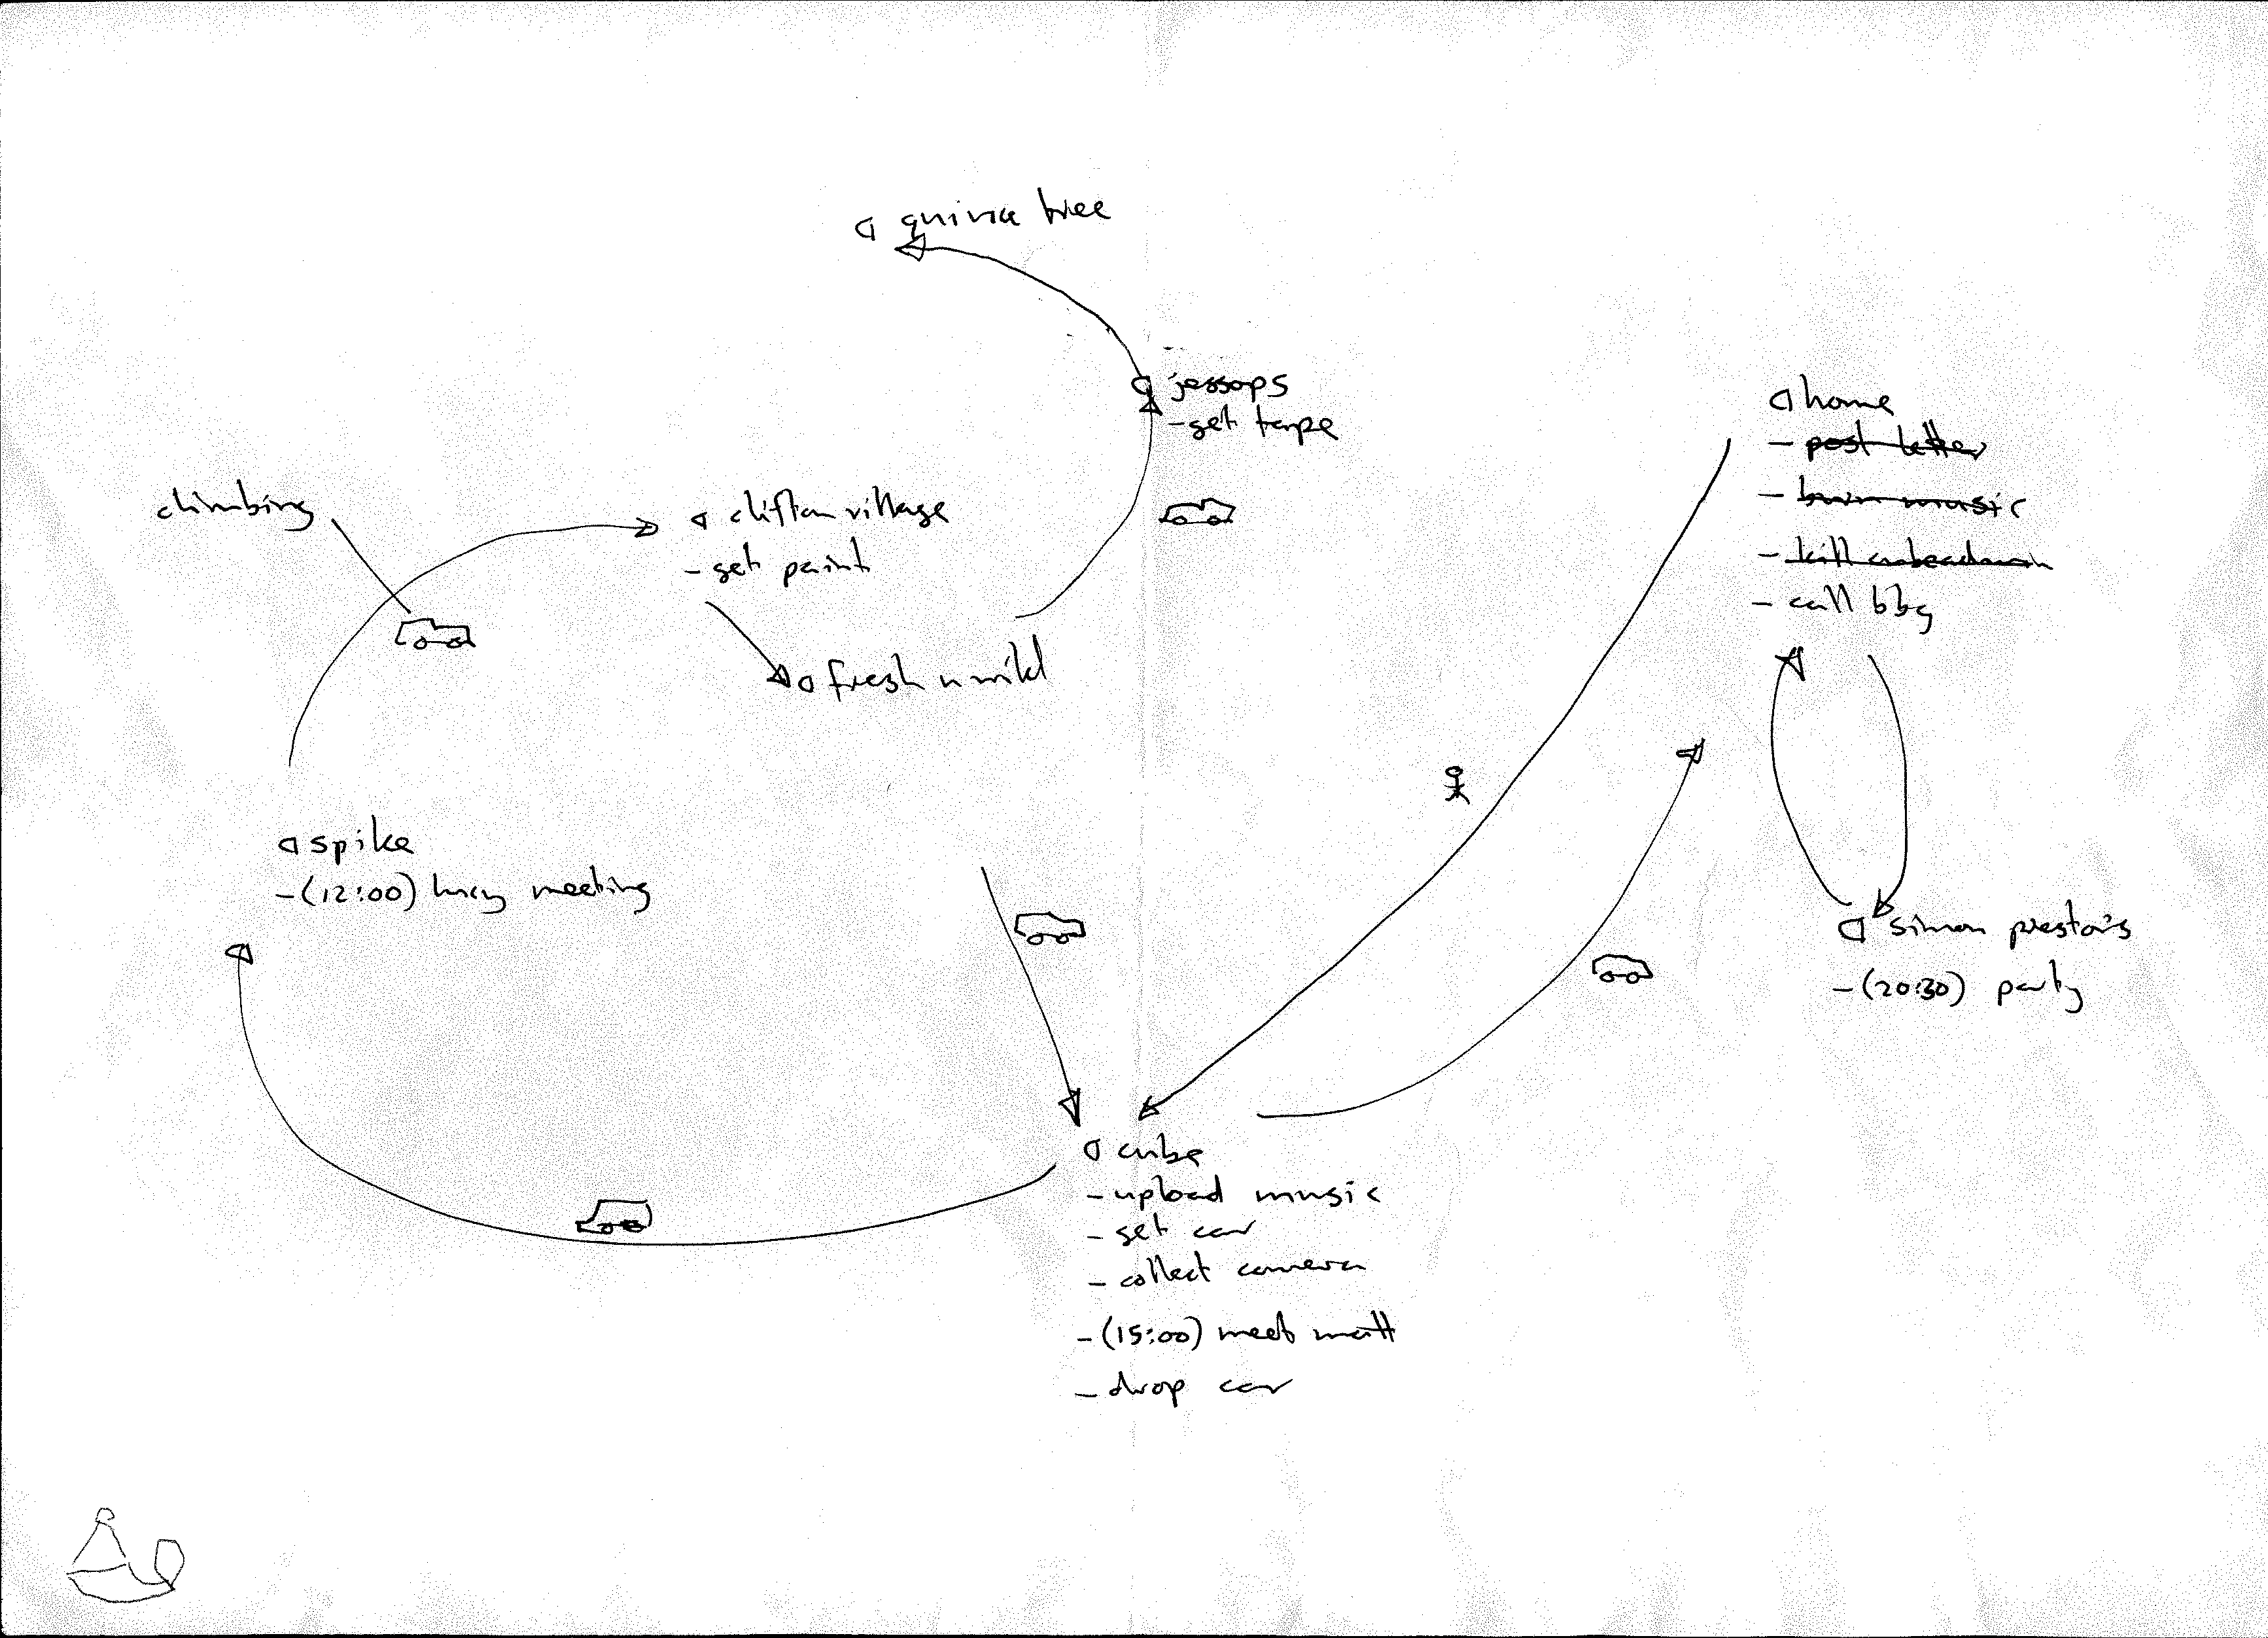 quiver tree
jessops
- get tape
home
- post letter
- burn music
- kill
- call bbg
climbing
clifton village
- get paint
fresh n wild
spike
- (12:00) lucy meeting
simon preston's
- (20:30) party
cube
- upload music
- get car
- collect camera
- (15:00) meet matt
- drop car